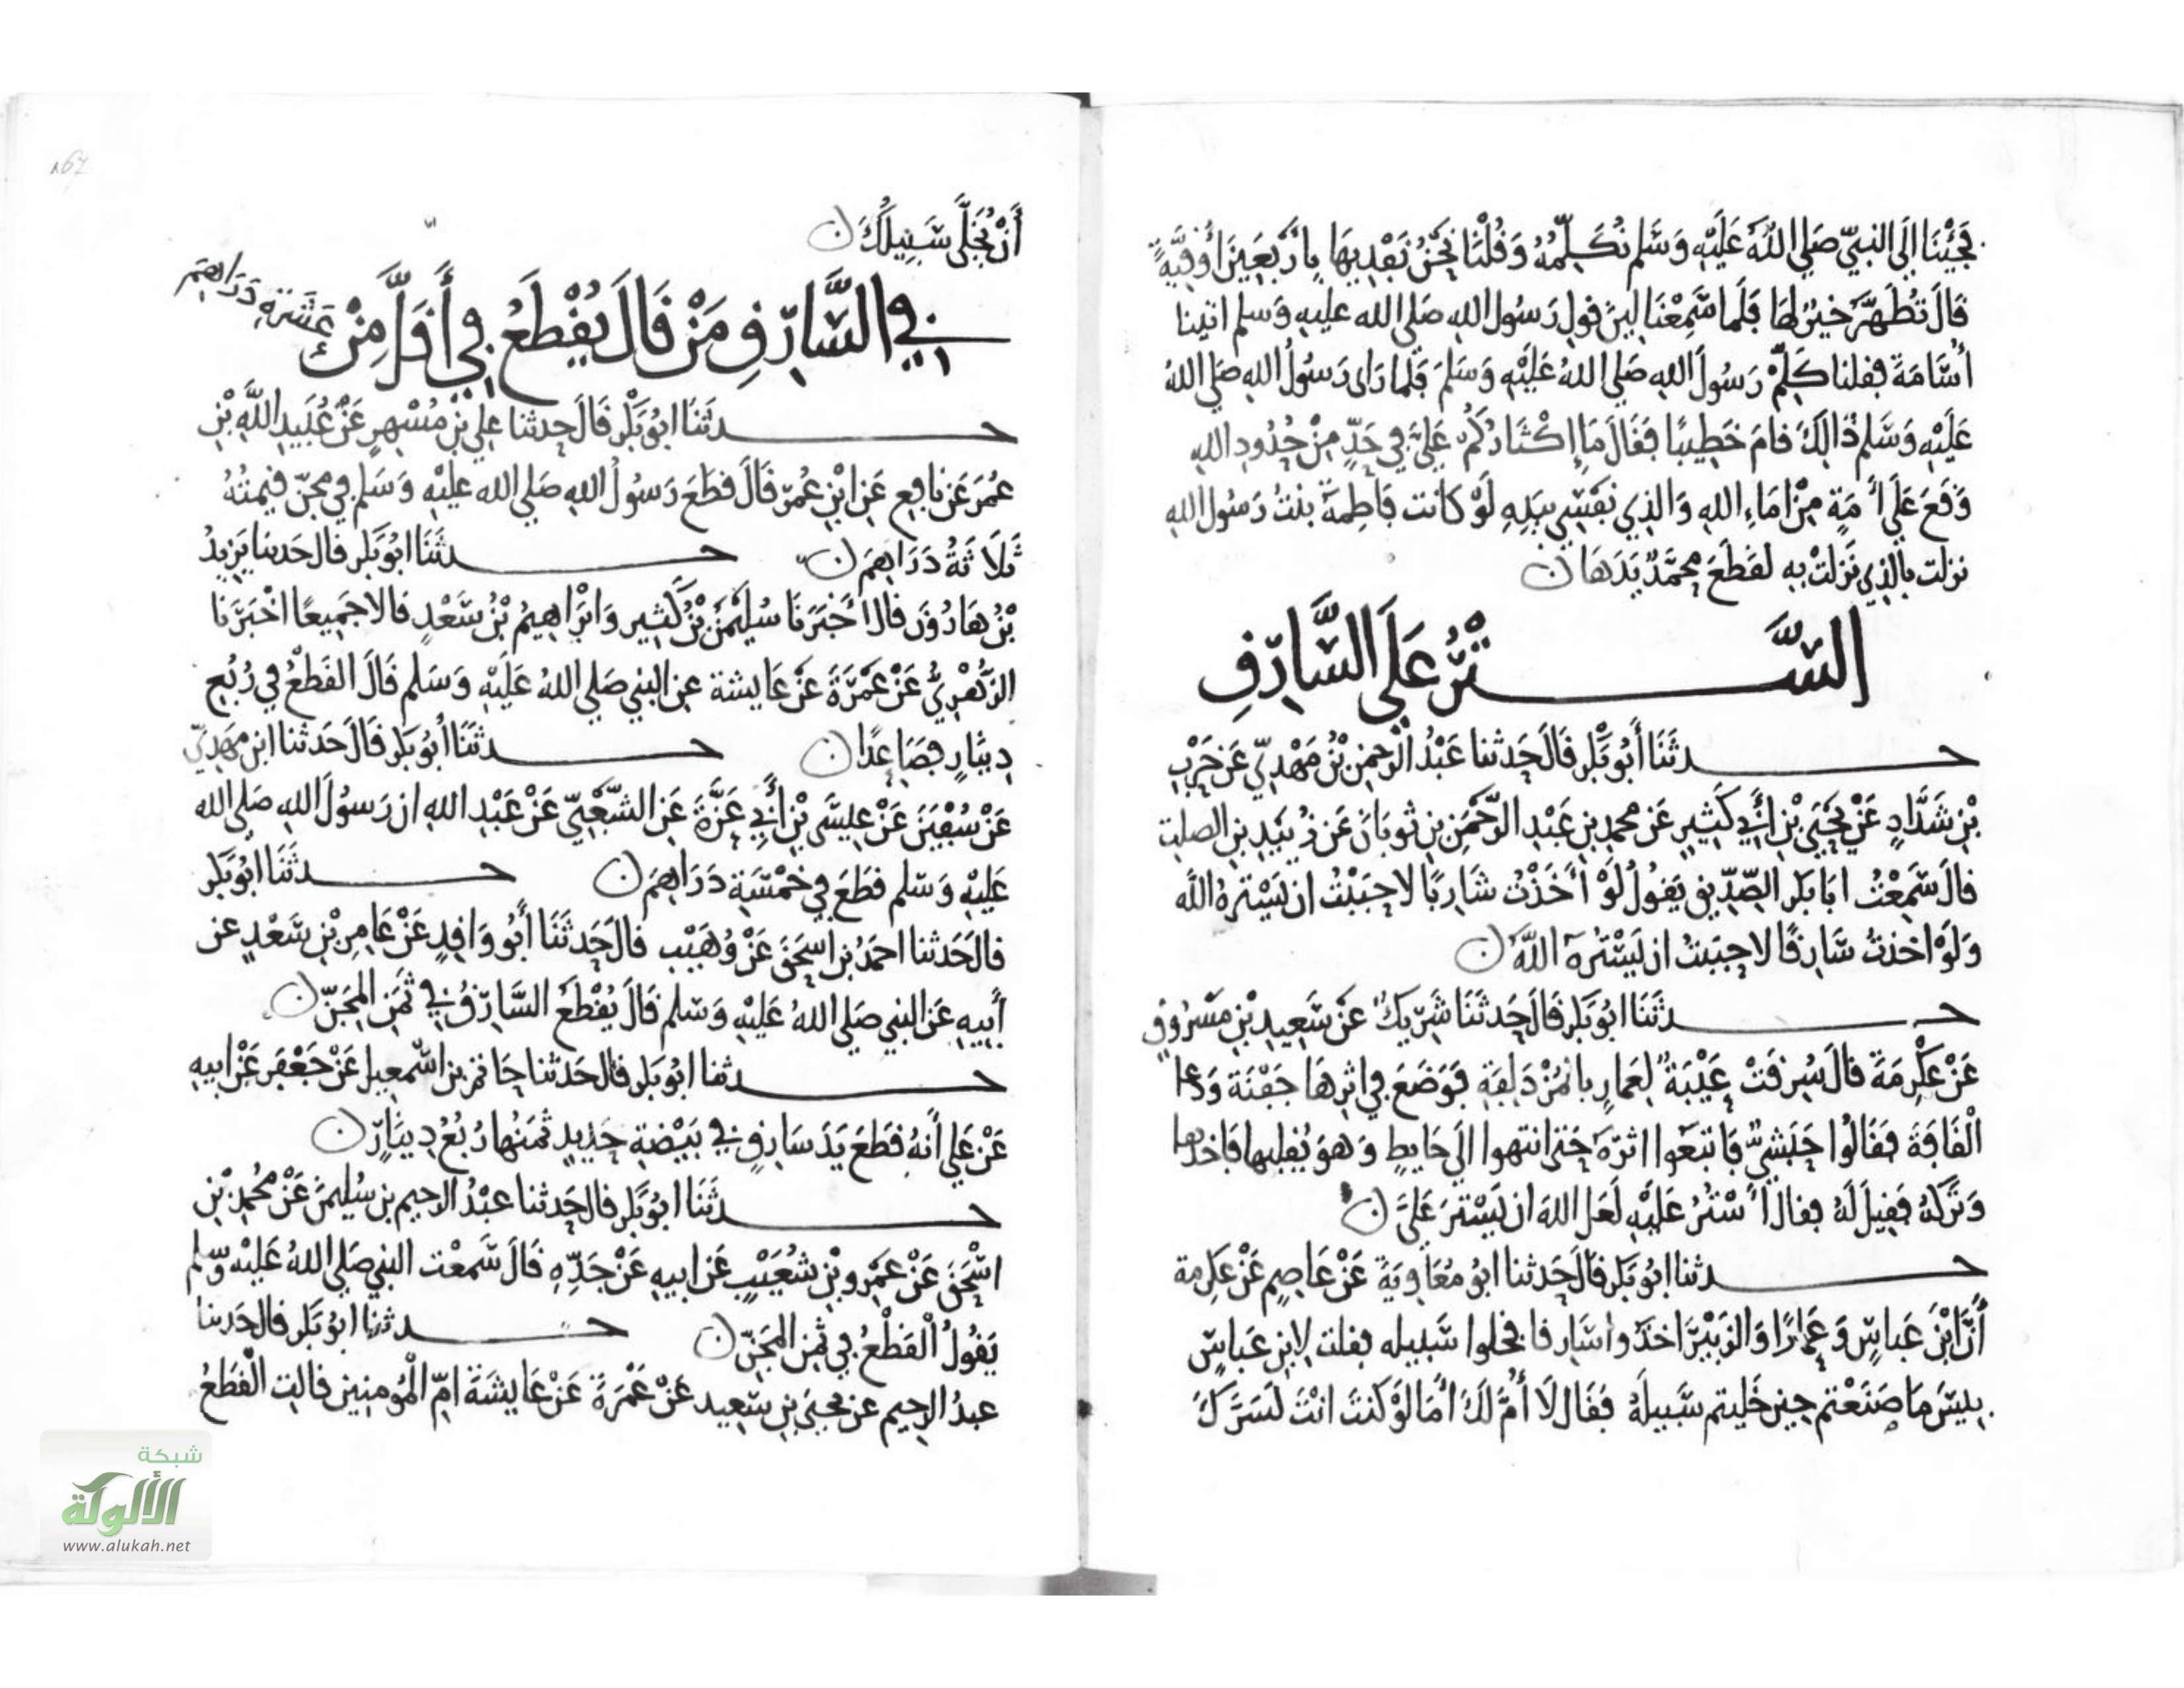 فَجِئْنَا إِلَى النبيّ صَلى اللهُ عَلَيْهِ وَسَلم نُكَلِّمُهُ وَقُلْنَا نَحْنُ نَفْدِيهَا بِأَرْبَعِينَ أُوقِيَّةً
قَالَ تُطَهَّرَ خَيْرٌ لهَا فَلَما سَمِعْنَا لِينَ قول رَسُول الله صَلى الله عليه وَسلم اتينا
أُسَامَةَ فقلنا كَلِّمْ رَسُولَ الله صَلى اللهُ عَلَيْهِ وَسَلمَ فَلما رَاى رَسُولُ الله صَلى اللهُ
عَلَيْهِ وَسَلم ذَالِكَ قامَ خَطِيبًا فَقَالَ مَا إِكْثَارُكُمْ عَلَيَّ فِي حَدٍّ مِنْ حُدُودِ الله
وَقَعَ عَلَى أَمَةٍ مِنْ امَاءِ الله وَالذِي نَفْسِي بيَدِهِ لَوْ كَانت فَاطِمَةُ بنتُ رَسُول الله
نزلت بالذِي نَزلَتْ بِهِ لقطَعَ محمَّدٌ يَدَهَا ن
السَّتْرُ عَلَى السَّارِقِ
حدثَنَا أَبُو بَكْر قَالَ حَدثنا عَبْدُ الرَّحمن بْنُ مَهْدِيّ عَن حَرْبِ
بْنِ شَدَّادٍ عَنْ يَحْيَى بْنِ أَبِي كَثِيرٍ عَن محمد بن عَبْدِ الرَّحْمَنِ بن ثوبَانَ عَن زُبَيْدِ بن الصلت
قالَ سَمِعْتُ ابَا بَكر الصِّدّيق يَقولُ لَوْ أَخَذْتُ شَارِبًا لاحبَبْتُ ان يَسْترهُ الله
وَلَوْ اخذتُ سَارقًا لاحبَبتُ ان يَسْتُرَهُ اللَّهُ ن
حدثَنَا ابُو بَكر قَالَ حَدثَنَا شَرِيكٌ عَنْ سَعِيدِ بْنِ مَسْرُوقٍ
عَنْ عكْرمَةَ قالَ سُرقَتْ عَيْبَةٌ لِعَمارٍ بالمُزْدَلِفَةِ فَوَضَعَ في اثرهَا جَفْنَة وَدعا
الْقَافَةَ فَقَالُوا حَبَشِيٌّ فَاتبعَوا اثرَهُ حَتى انتهوا الَى حَايِطٍ وَهوَ يُقلبها فَاخذها
وَتَركَهُ فَقِيلَ لَهُ فقال أَسْتُرُ عَلَيْهِ لَعَل اللهَ ان يَسْترَ عَليَّ ن
حدثنا ابُو بَكر قَالَ حَدثنا ابُو مُعَاوِيَةَ عَنْ عَاصِمٍ عَنْ عكرمة
أَنَّ ابْنَ عَباسٍ وَعَمارًا وَالزبَيْرَ اخذوا سَارقا فخلوا سَبيله فقلت لابن عَباسٍ
بِيسَ مَا صَنَعْتم حِين خَليتم سَبيلَهُ فَقَال لَا أُمَّ لَكَ أَمَا لَوْ كنتَ انْتَ لَسَرَّكَ
أَنْ يُخَلَّى سَبِيلُكَ ن
فِي السَّارِقِ مَنْ قَالَ يُقْطَعُ فِي أَقَلَّ مِنْ عَشَرَةِ دَرَاهِمَ
حدثَنَا ابُو بَكْر قَالَ حَدثنا عَلي بْنُ مُسْهِرٍ عَنْ عُبَيدِ اللَّهِ بْنِ
عُمَرَ عَن نافِعٍ عَنِ ابْنِ عُمَرَ قَالَ قطَعَ رَسُولُ الله صَلى الله عليْهِ وَسَلم فِي مجَنّ قيمتُهُ
ثَلَاثَةُ دَرَاهِمَ ن حدثَنَا ابُو بَكر قال حَدثنا يَزيدُ
بْنُ هَارُونَ قَالَ أَخْبَرَنَا سُلَيْمَنُ بْنُ كَثِير وَابْرَاهِيمُ بْنُ سَعْدٍ قَالا جَمِيعًا اخْبَرَنَا
الزهْرِيُّ عَنْ عَمْرَةَ عَنْ عَايشة عن النبي صَلى اللهُ عَلَيْهِ وَسَلم قَالَ القَطْعُ فِي رُبُعِ
دِينَارٍ فصَاعِدًا ن حدثَنَا أَبُو بَكر قَالَ حَدثنا ابن مَهْدِيّ
عَنْ سُفْيَنَ عَنْ عِيسَى بْنِ أَبِي عَزَّةَ عَنِ الشَّعْبِيّ عَنْ عَبْدِ الله ان رَسُولَ الله صَلى الله
عَليْهِ وَسَلم قطَعَ فِي خَمْسَةِ دَرَاهِمَ ن حدثَنَا ابُو بَكر
قالَ حَدثنا احمَدُ بْن اسحَقَ عَنْ وُهَيْبٍ قالَ حَدثَنَا أَبُو وَاقِدٍ عَنْ عَامِرِ بْنِ سَعْدٍ عن
أَبِيهِ عَنِ النبي صَلى اللهُ عَلَيْهِ وَسَلم قَالَ يُقْطَعُ السَّارِقُ فِي ثَمَنِ المِجَنّ ن
حدثنا ابُو بَكر قال حَدثنا حَاتم بن اسْمعيل عَنْ جَعْفَر عَنْ ابيه
عَنْ عَلي أَنهُ قطَعَ يَدَ سَارقٍ فِي بَيْضةِ حَدِيدٍ ثمَنُهَا رُبُعُ دِينَارٍ ن
حدثَنَا ابُو بَكر قال حَدثنا عبْدُ الرحيم بن سُليمنَ عَنْ مُحمد بْنِ
اسْحَقَ عَنْ عَمْرو بْنِ شُعَيْبٍ عَن ابيهِ عَنْ جَدِّهِ قَالَ سَمعْت النبي صَلى اللهُ عَلَيْهِ وَسَلم
يَقُولُ الْقطْعُ فِي ثمَنِ المجَنّ ن حدثنا ابُو بَكر قال حَدثنا
عبدُ الرحيم عن يحيَى بن سَعِيد عَنْ عَمْرَةَ عَنْ عَايشَةَ امِّ الْمُومِنِين قالت الْقَطعُ
شبكة
الألوكة
www.alukah.net